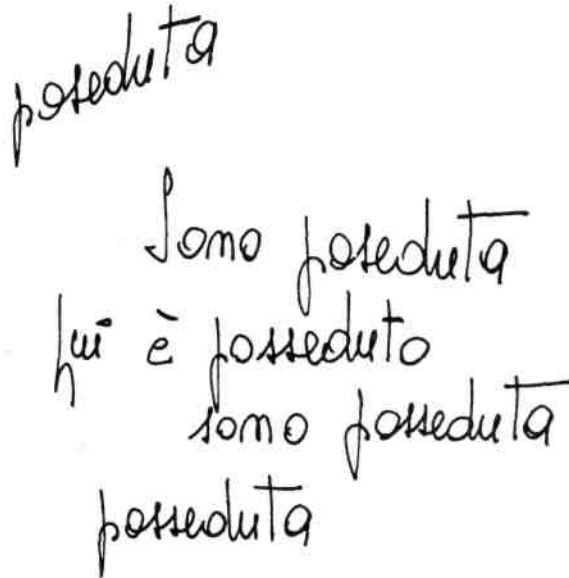 poseduta
Sono poseduta
lui è posseduto
sono posseduta
posseduta